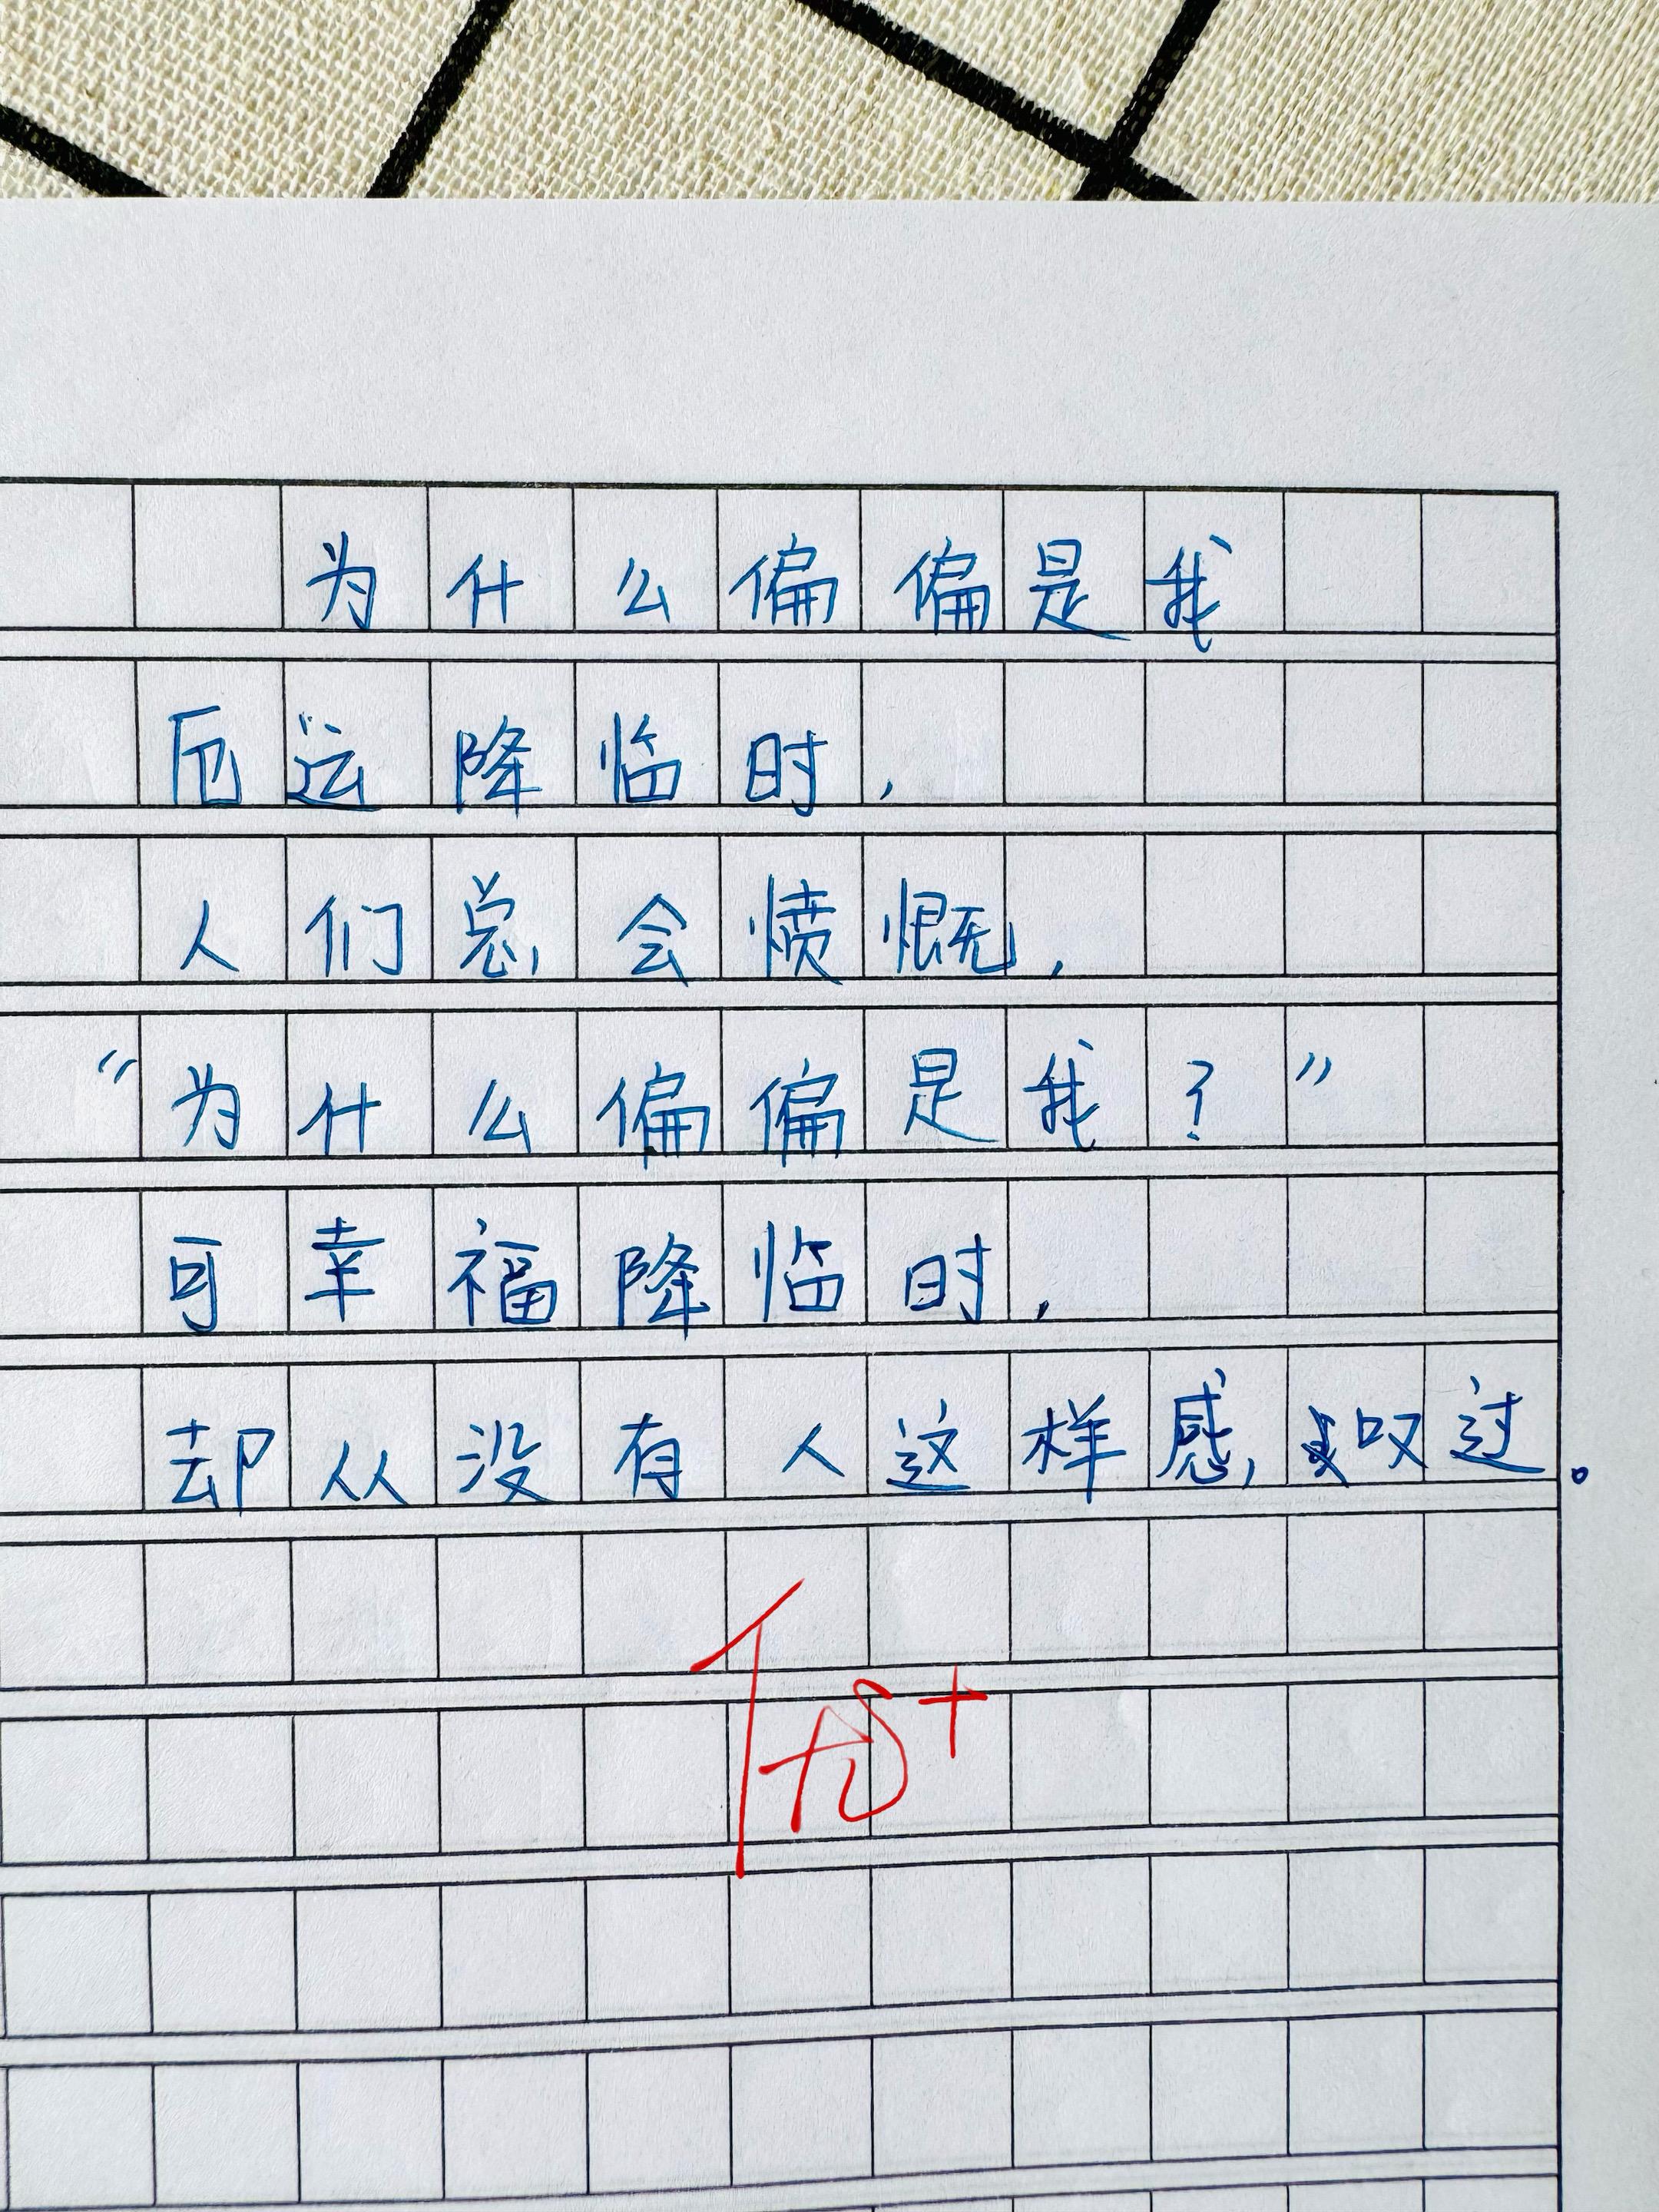 为什么偏偏是我
厄运降临时，
人们总会愤慨，
“为什么偏偏是我？”
可幸福降临时，
却从没有人这样感叹过。
优+